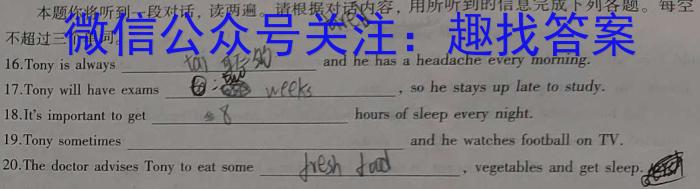 本题你将听到一段对话，读两遍。请根据对话内容，用所听到的信息完成下列各题。每空
不超过三个单词。
微信公众号关注：趣找答案
16.Tony is always and he has a headache every morning.
17.Tony will have exams two weeks , so he stays up late to study.
18.It's important to get 8 hours of sleep every night.
19.Tony sometimes and he watches football on TV.
20.The doctor advises Tony to eat some fresh food , vegetables and get sleep.